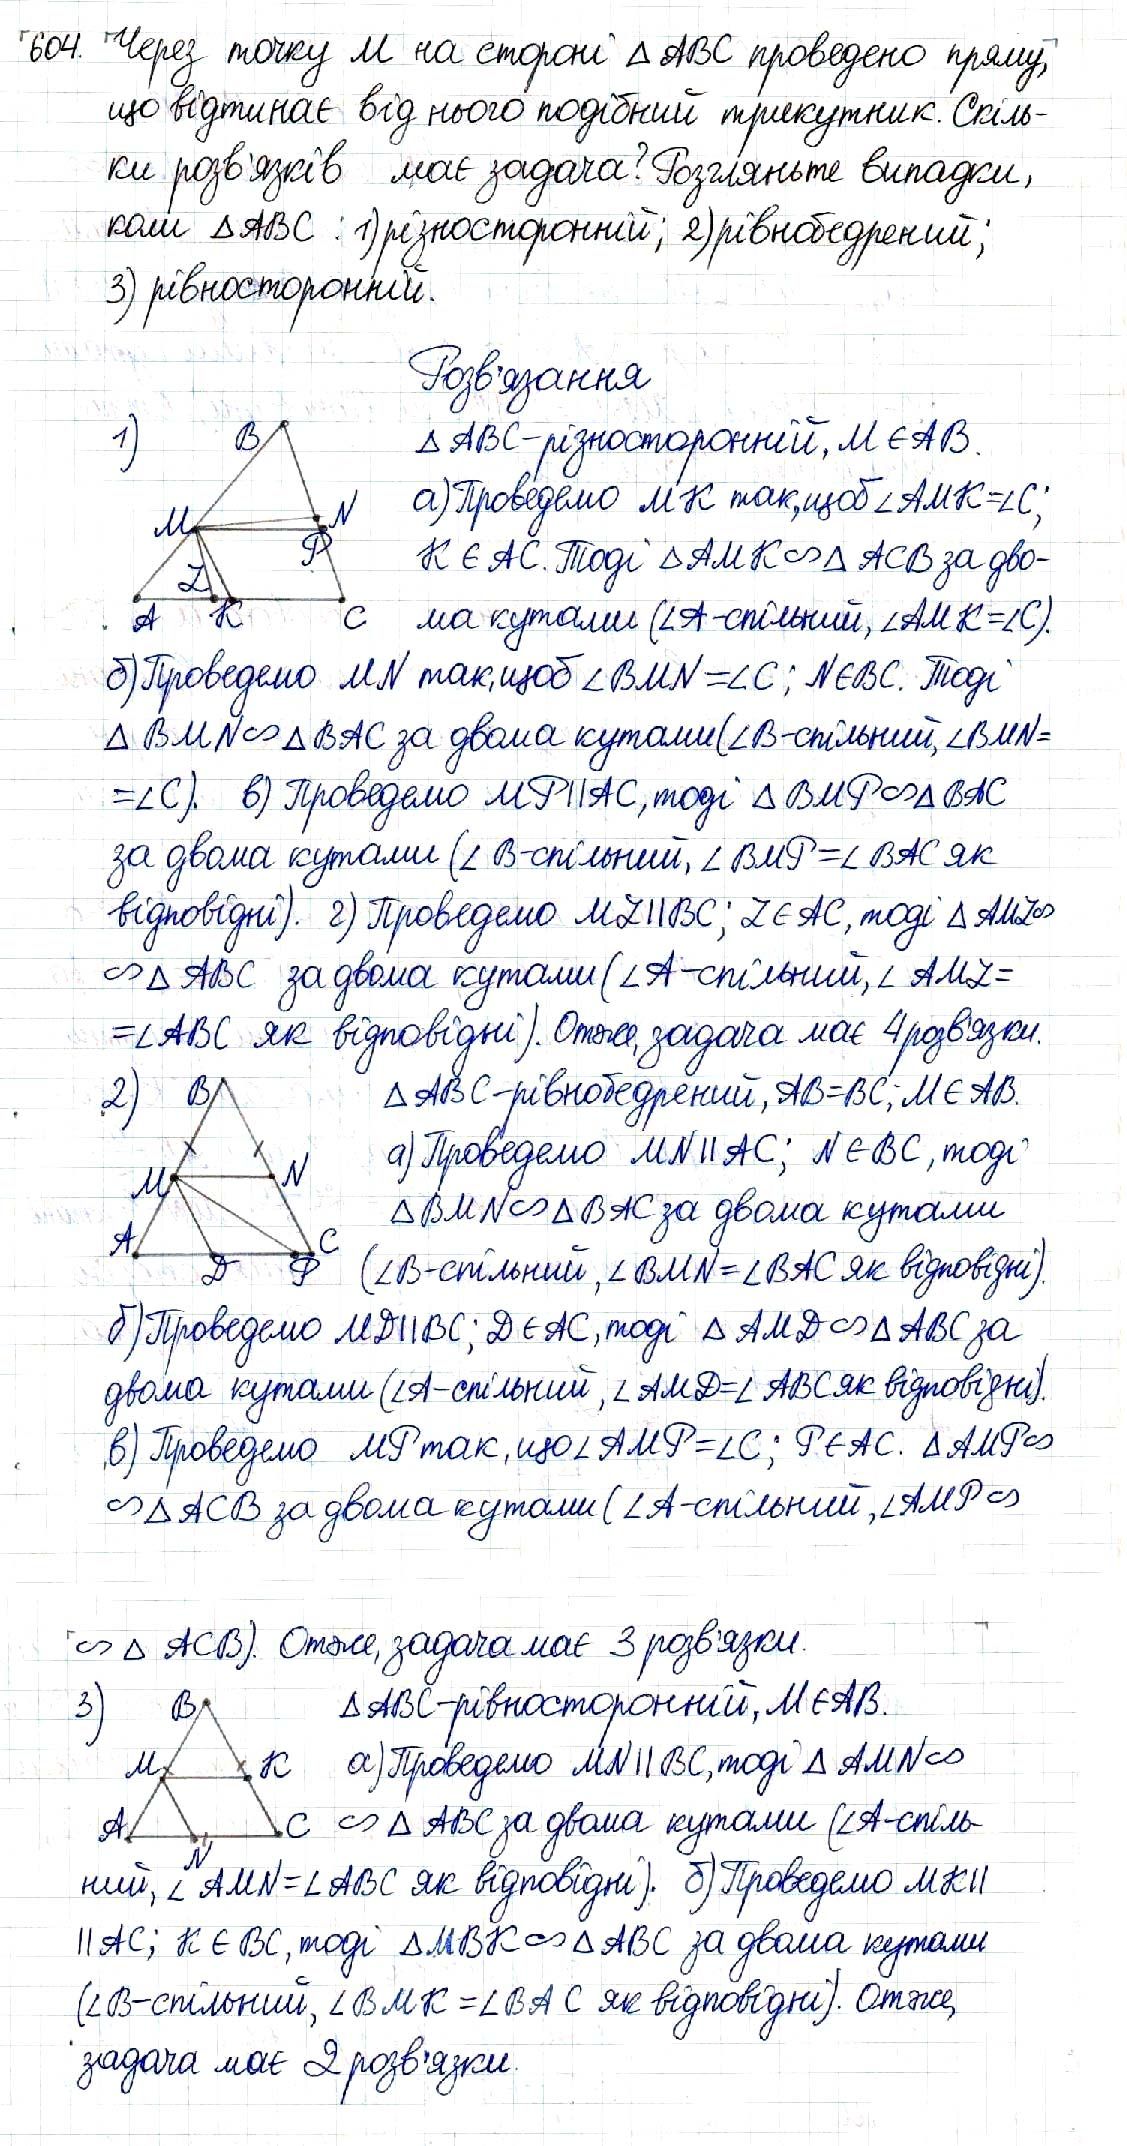 604. Через точку M на стороні △ABC проведено пряму,
що відтинає від нього подібний трикутник. Скіль-
ки розв'язків має задача? Розгляньте випадки,
коли △ABC: 1) різносторонній; 2) рівнобедрений;
3) рівносторонній.
Розв'язання
1)
B
M
N
P
Z
A
K
C
△ABC-різносторонній, M∈AB.
а) Проведемо MK так, щоб ∠AMK=∠C;
K∈AC. Тоді △AMK∽△ACB за дво-
ма кутами (∠A-спільний, ∠AMK=∠C).
б) Проведемо MN так, щоб ∠BMN=∠C; N∈BC. Тоді
△BMN∽△BAC за двома кутами (∠B-спільний, ∠BMN=
=∠C). в) Проведемо MP||AC, тоді △BMP∽△BAC
за двома кутами (∠B-спільний, ∠BMP=∠BAC як
відповідні). г) Проведемо MZ||BC; Z∈AC, тоді △AMZ∽
∽△ABC за двома кутами (∠A-спільний, ∠AMZ=
=∠ABC як відповідні). Отже, задача має 4 розв'язки.
2)
B
M
N
A
D
P
C
△ABC-рівнобедрений, AB=BC; M∈AB.
а) Проведемо MN||AC; N∈BC, тоді
△BMN∽△BAC за двома кутами
(∠B-спільний, ∠BMN=∠BAC як відповідні).
б) Проведемо MD||BC; D∈AC, тоді △AMD∽△ABC за
двома кутами (∠A-спільний, ∠AMD=∠ABC як відповідні).
в) Проведемо MP так, що ∠AMP=∠C; P∈AC. △AMP∽
∽△ACB за двома кутами (∠A-спільний, ∠AMP∽
∽△ACB). Отже, задача має 3 розв'язки.
3)
B
M
K
A
N
C
△ABC-рівносторонній, M∈AB.
а) Проведемо MN||BC, тоді △AMN∽
∽△ABC за двома кутами (∠A-спіль-
ний, ∠AMN=∠ABC як відповідні). б) Проведемо MK||
||AC; K∈BC, тоді △MBK∽△ABC за двома кутами
(∠B-спільний, ∠BMK=∠BAC як відповідні). Отже,
задача має 2 розв'язки.